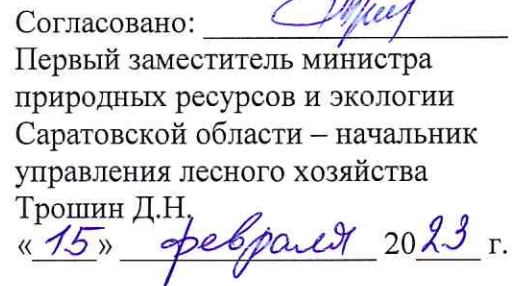 Согласовано:
Первый заместитель министра
природных ресурсов и экологии
Саратовской области – начальник
управления лесного хозяйства
Трошин Д.Н.
«15» февраля 2023 г.